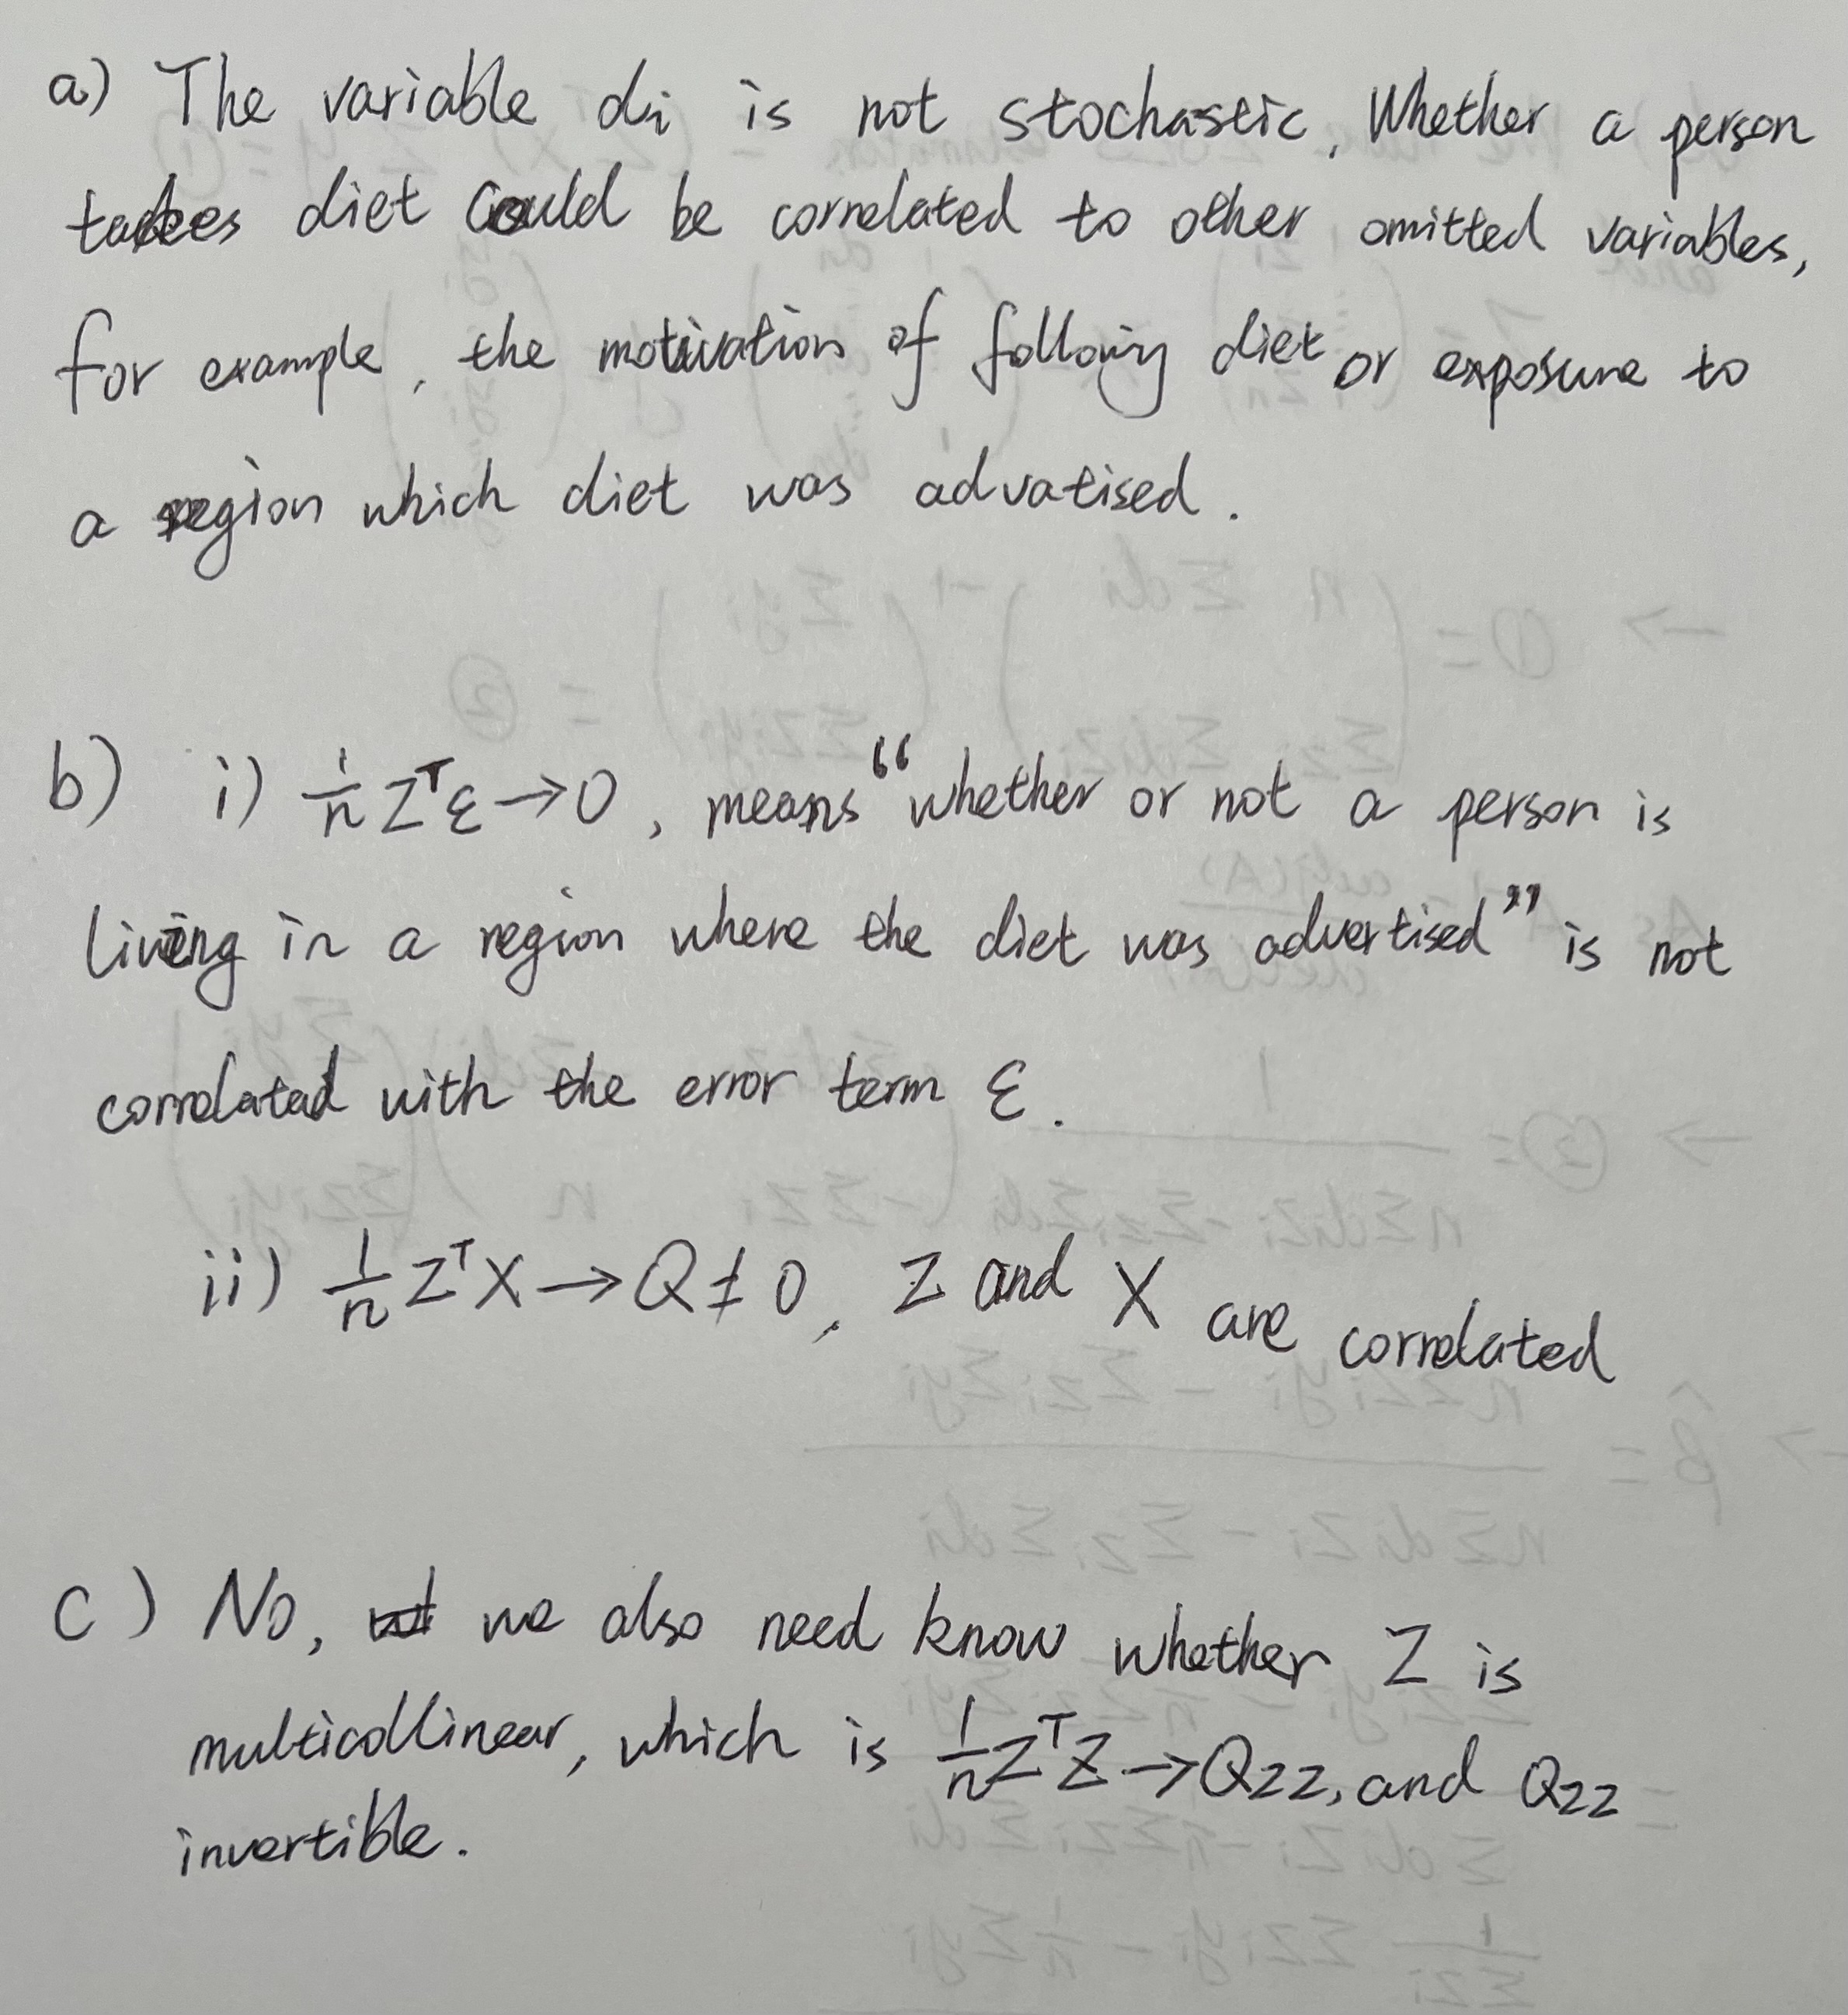 a) The variable di is not stochastic, Whether a person
takes diet could be correlated to other omitted variables,
for example, the motivation of following diet or exposure to
a region which diet was advatised.
b) i) 1/n ZᵀƐ→0, means “whether or not a person is
living in a region where the diet was advertised” is not
correlated with the error term Ɛ.
ii) 1/n ZᵀX→Q≠0, Z and X are correlated
c) No, we also need know whether Z is
multicollinear, which is 1/n ZᵀZ→Qzz, and Qzz
invertible.